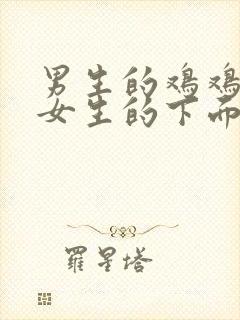 男生的鸡鸡
女生的下面
羅星塔